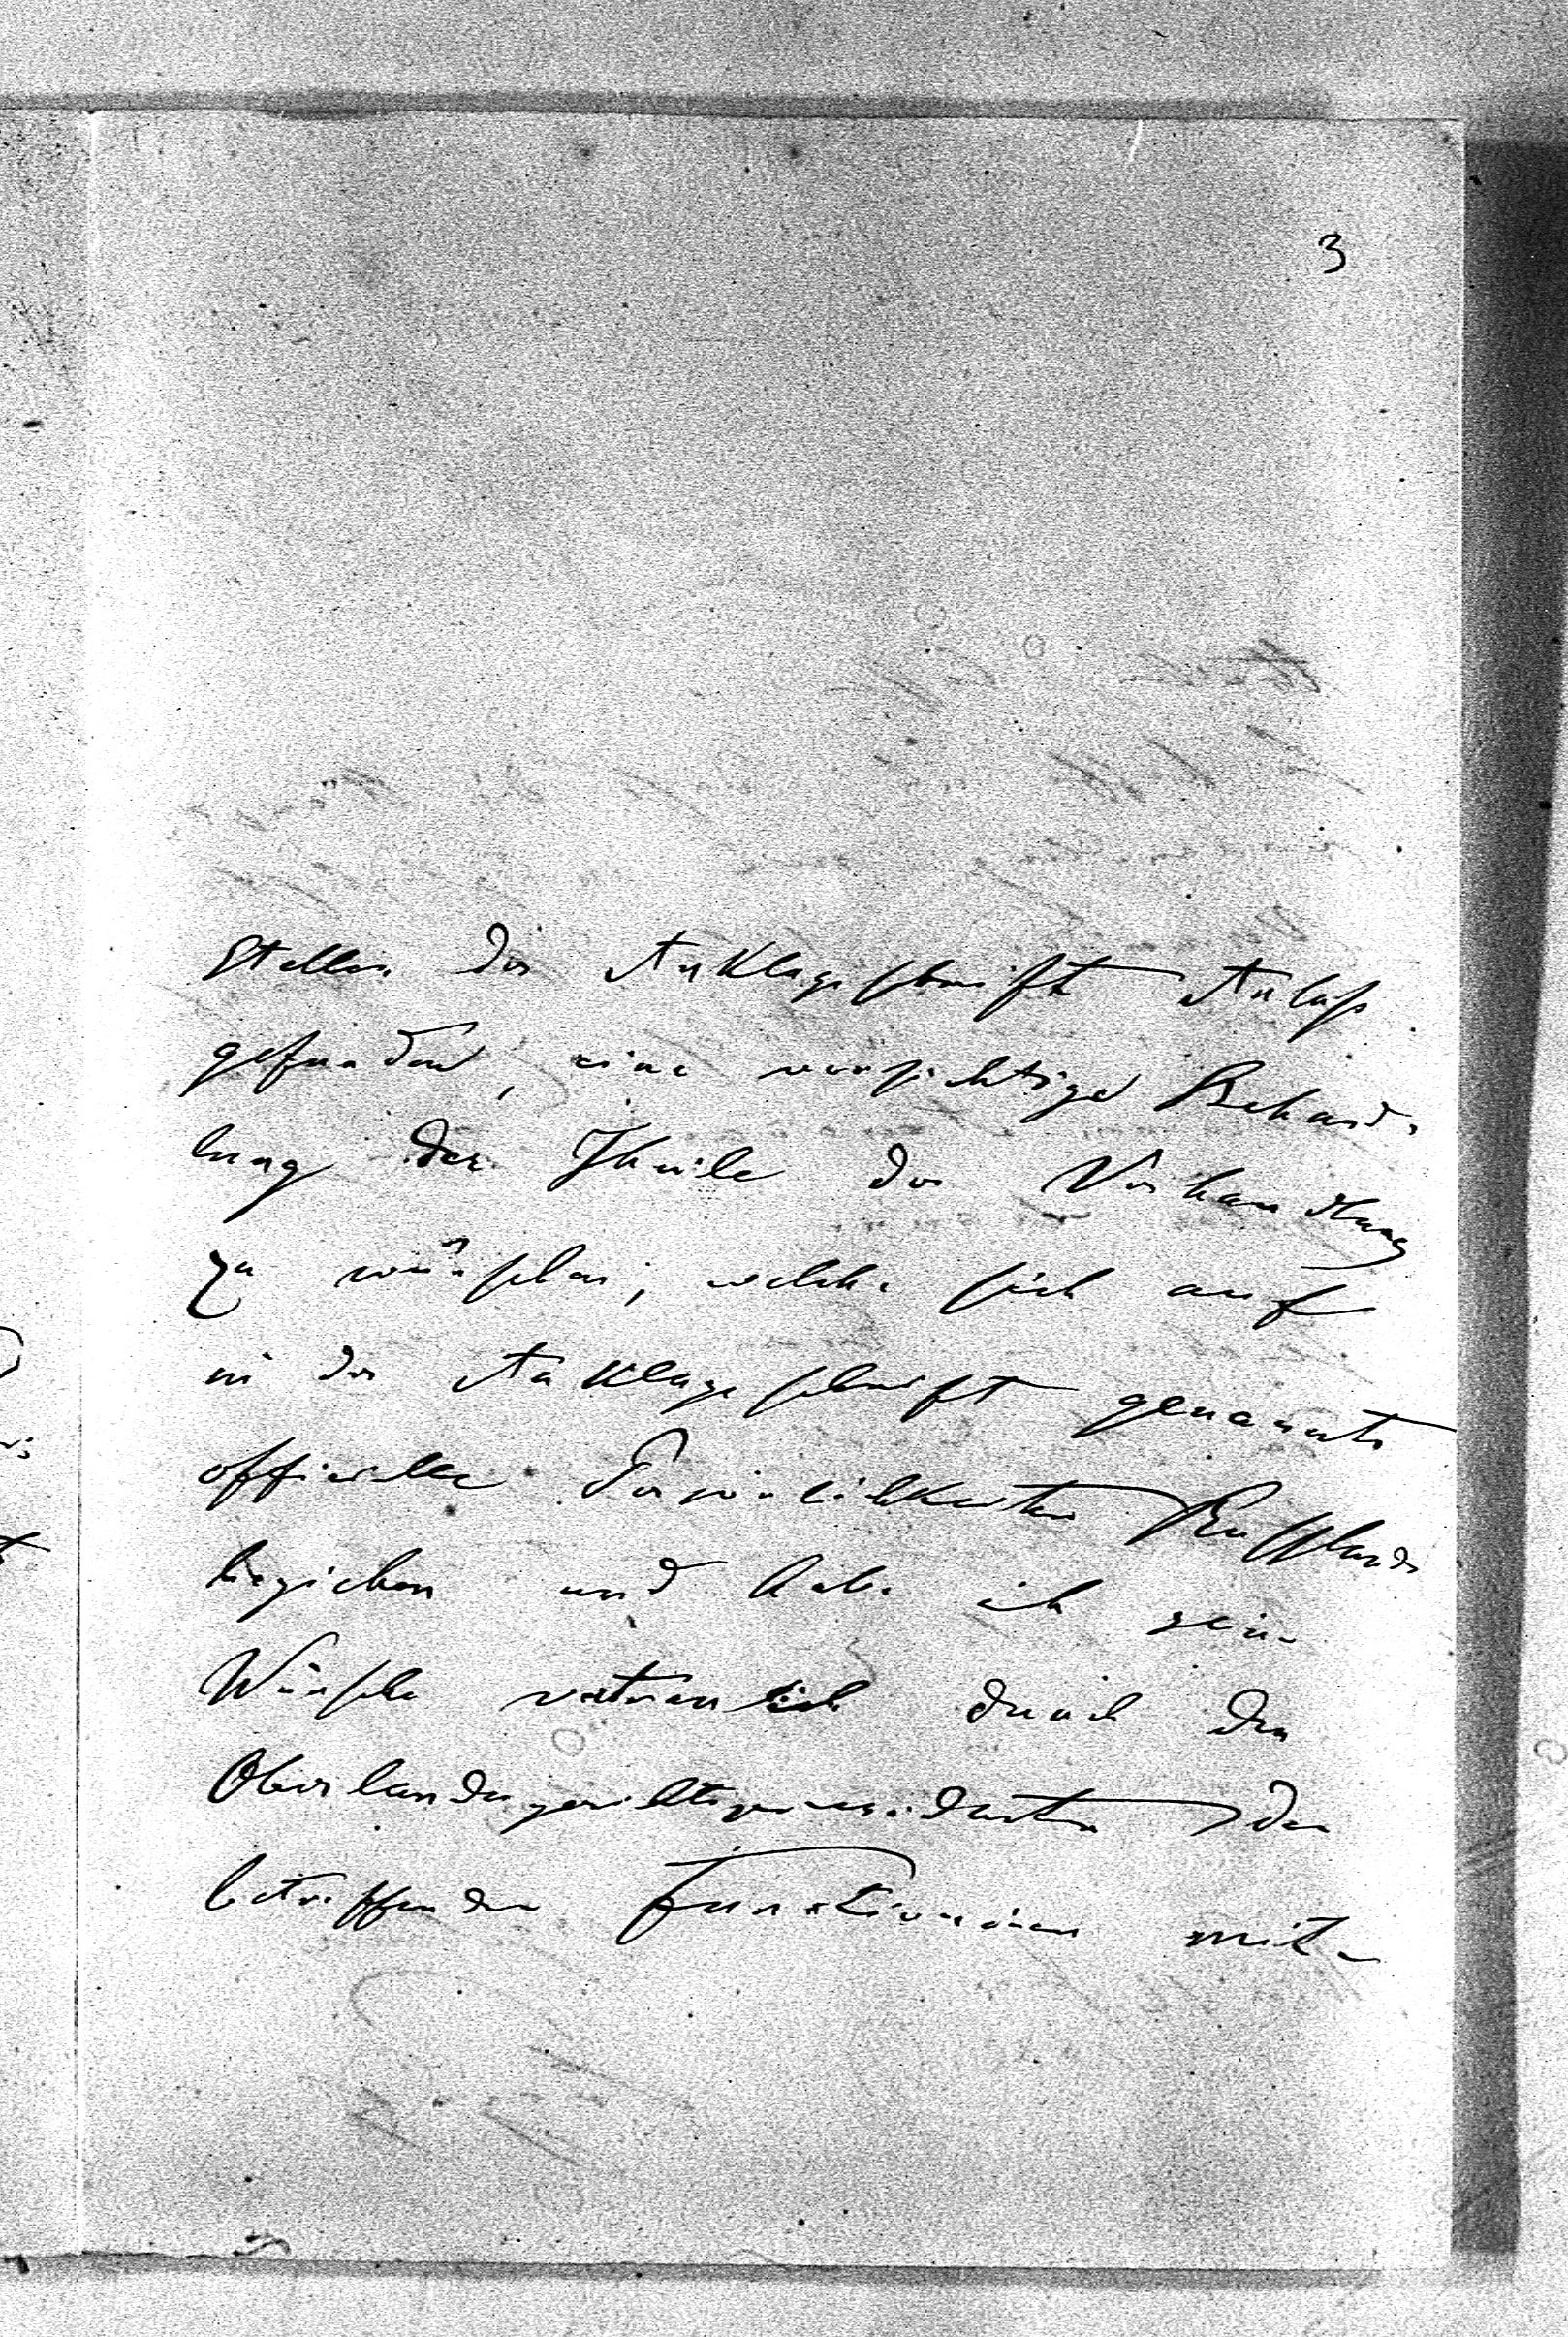 3
Stellen der Anklageschrift Anlaß
gefunden, eine vorsichtige Behand-
lung der Theile der Verhandlung
zu wünschen, welche sich auf
in der Anklageschrift genannte
offizielle Persönlichkeiten Russlands
beziehen und habe ich seine
Wünsche vertraulich durch den
Oberlandesgerichtspräsidenten den
betreffenden Funktionären mit-